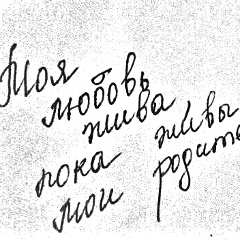 Моя
любовь
жива
пока живы
мои родите